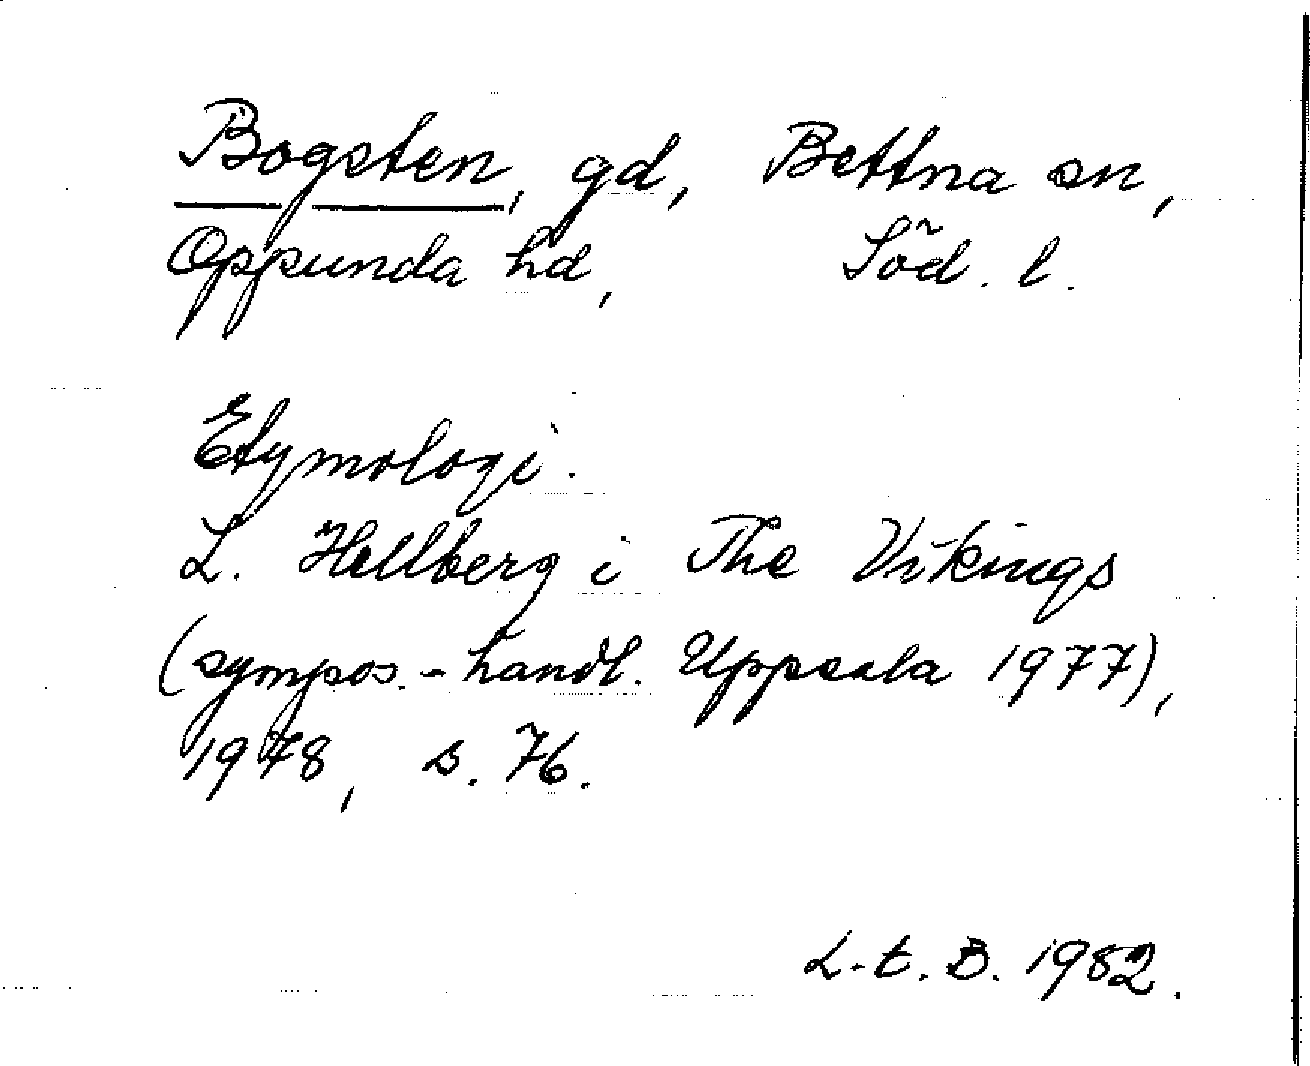 Bogsten, gd, Bettna sn,
Oppunda hd, Söd. l.
Etymologi.
L. Hellberg i The Vikings
(sympos.-handl. Uppsala 1977),
1978, s. 76.
L.E.B. 1982.